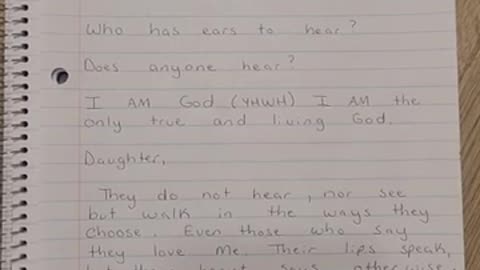 Who has ears to hear?
Does anyone hear?
I AM God (YHWH) I AM the
only true and living God.
Daughter,
They do not hear, nor see
but walk in the ways they
choose. Even those who say
they love Me. Their lips speak,